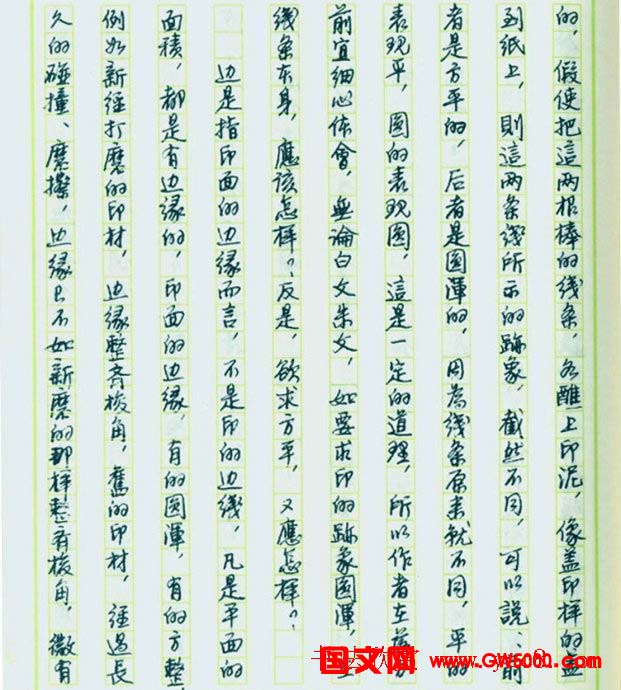 的，假使把這两根棒的线条，各醮上印泥，像盖印样的盖
到纸上，則這两条綫所示的跡象，截然不同，可以說：前
者是方平的，后者是圆渾的，因為綫条原来就不同，平的
表现平，圆的表现圆，這是一定的道理，所以作者在落
前宜细心体會，無論白文朱文，如要求印的跡象圆渾，
线条本身，應该怎样？反是，欲求方平，又應怎样？
边是指印面的边缘而言，不是印的边綫，凡是平面的
面積，都是有边缘的，印面的边缘，有的圆渾，有的方整，
例如新经打磨的印材，边缘整齐棱角，舊的印材，经過長
久的碰撞、磨擦，边缘已不如新磨的那样整齐棱角，微有
国文网 www.GW5000.com